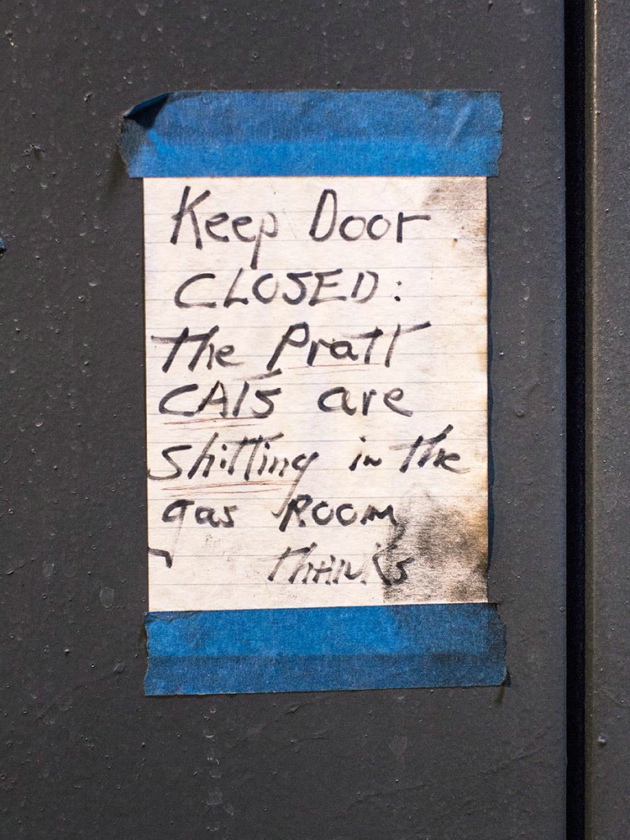 Keep Door
CLOSED:
The Pratt
CATS are
Shitting in the
gas ROOM
THANKS